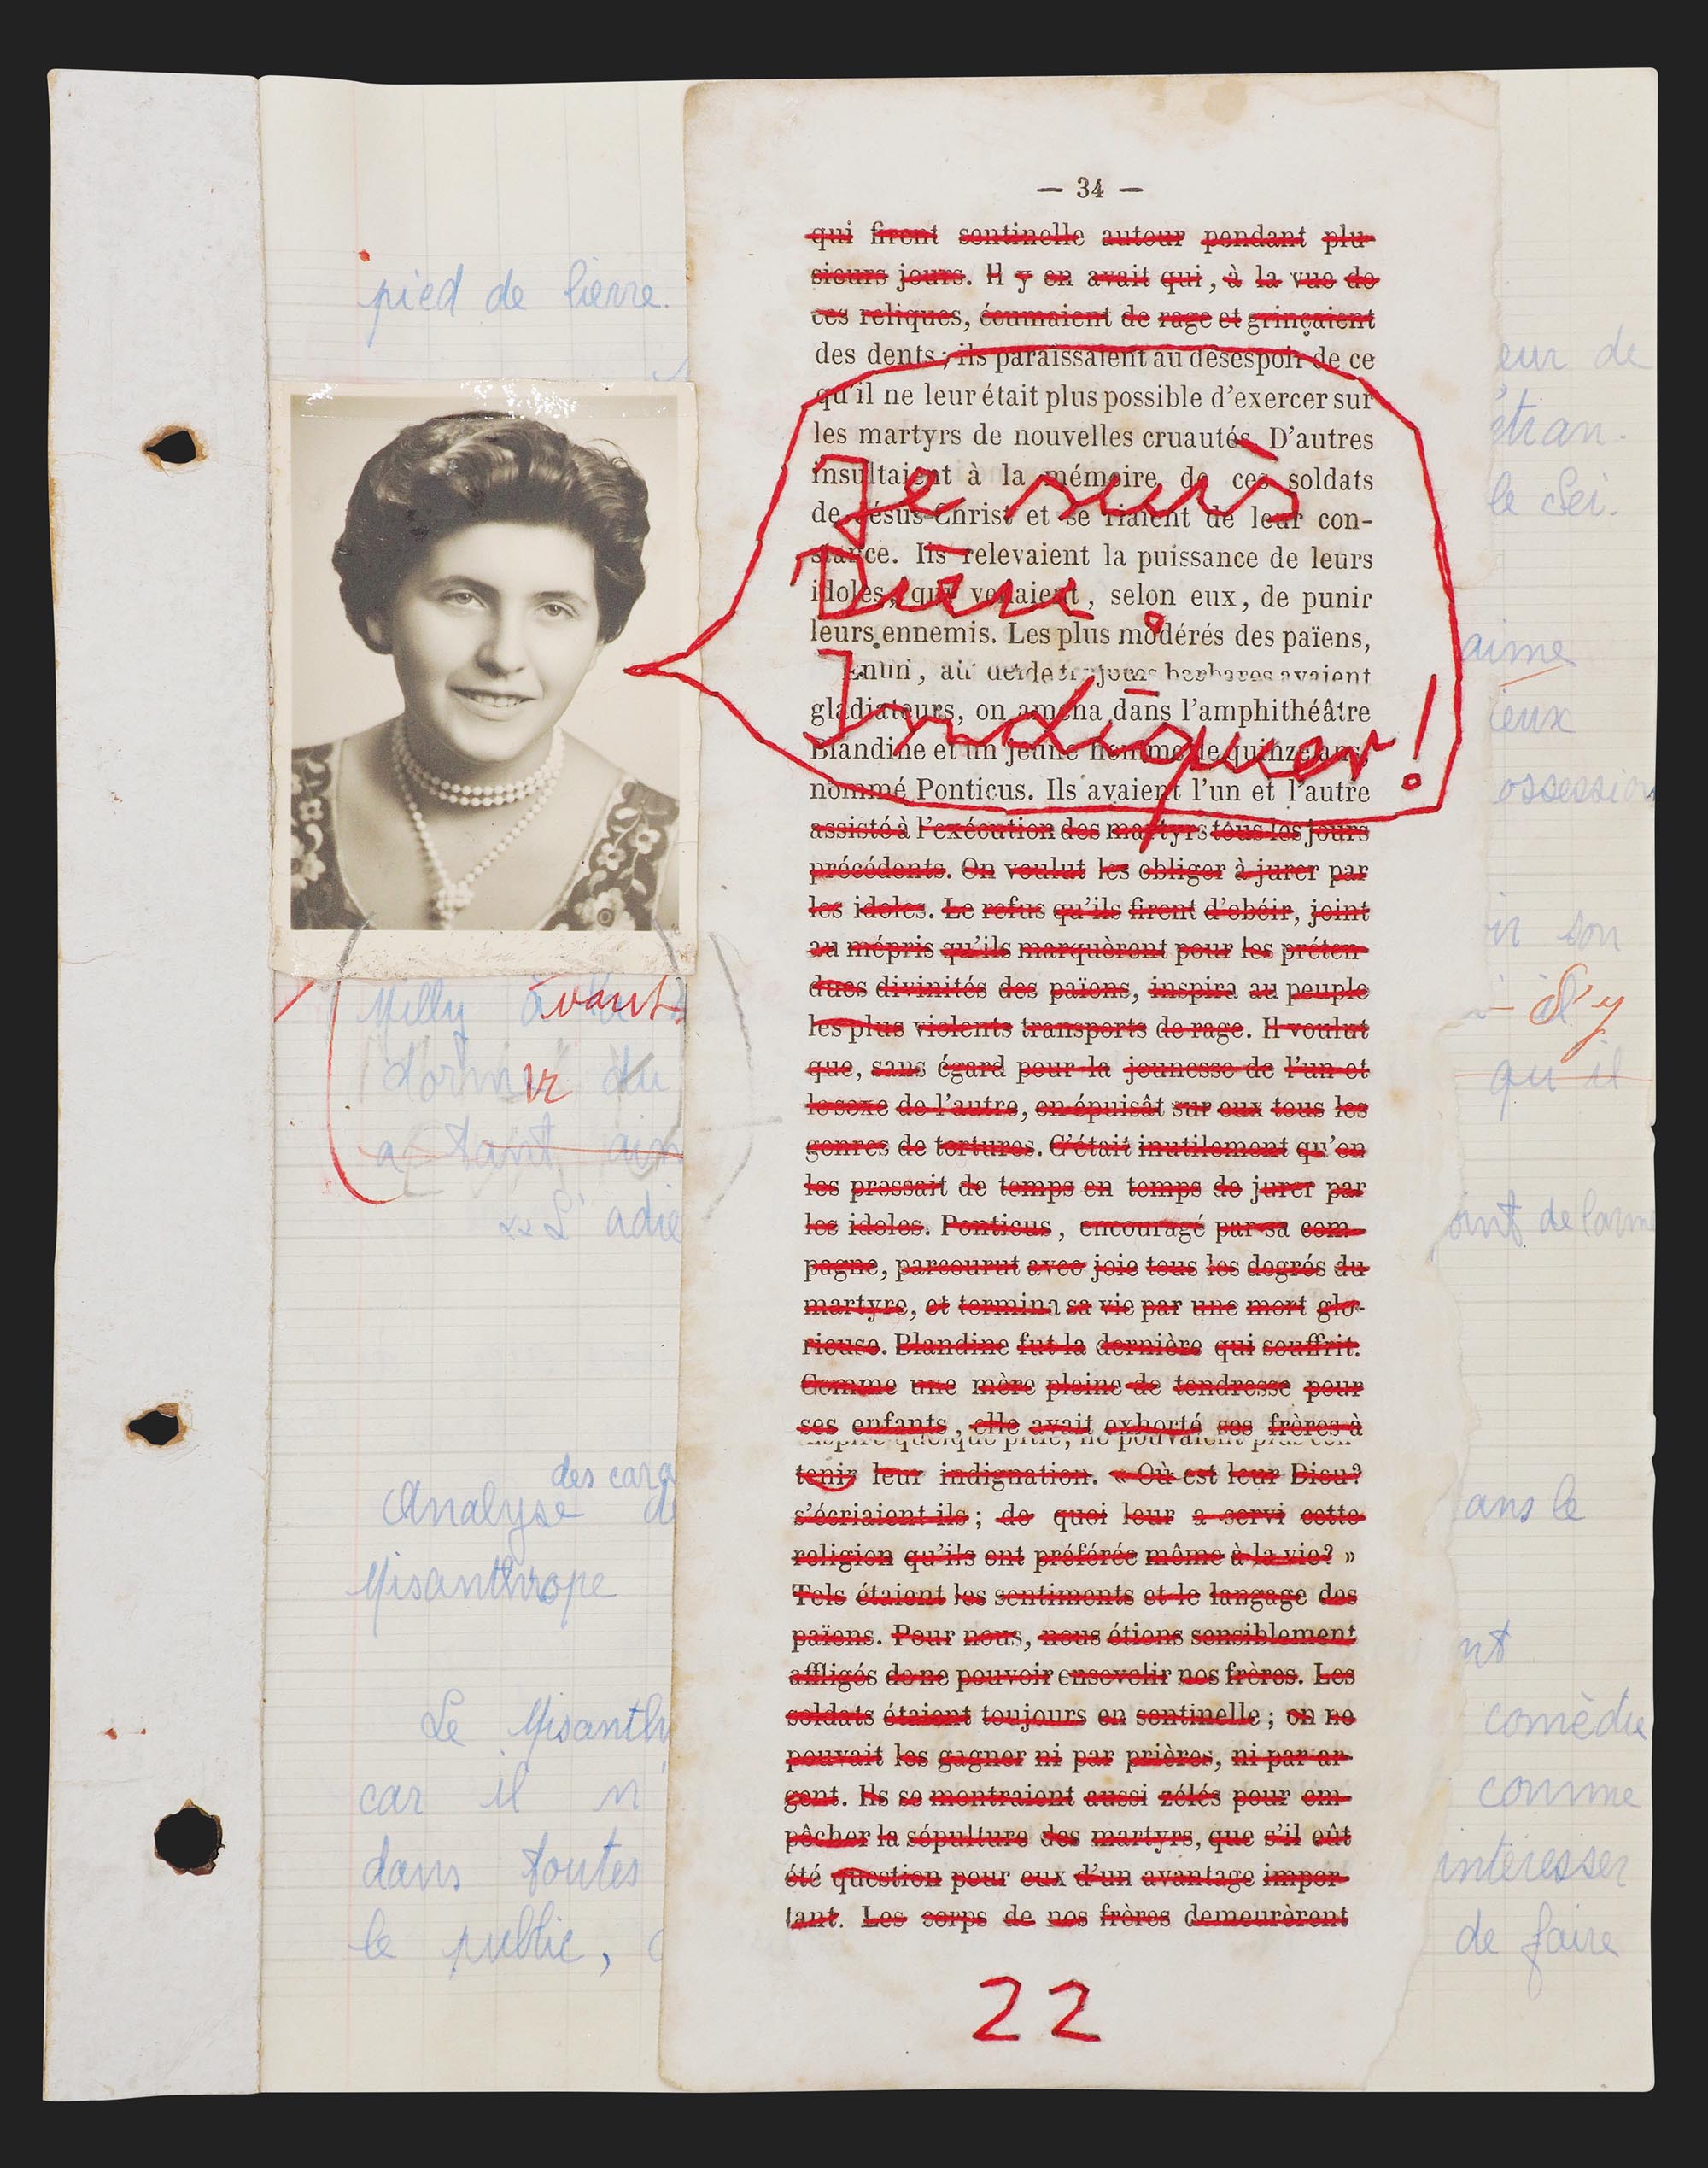 pied de lierre.
— 34 —
qui firent sentinelle autour pendant plu-
sieurs jours. Il y en avait qui, à la vue de
ces reliques, écumaient de rage et grinçaient
des dents; ils paraissaient au désespoir de ce
qu'il ne leur était plus possible d'exercer sur
les martyrs de nouvelles cruautés. D'autres
insultaient à la mémoire de ces soldats
de Jésus-Christ et se riaient de leur con-
stance. Ils relevaient la puissance de leurs
idoles, qui venaient, selon eux, de punir
leurs ennemis. Les plus modérés des païens,
Enfin, barbares avaient
gladiateurs, on amena dans l'amphithéâtre
Blandine et un jeune homme de quinze ans,
nommé Ponticus. Ils avaient l'un et l'autre
assisté à l'exécution des martyrs tous les jours
précédents. On voulut les obliger à jurer par
les idoles. Le refus qu'ils firent d'obéir, joint
au mépris qu'ils marquèrent pour les préten-
dues divinités des païens, inspira au peuple
les plus violents transports de rage. Il voulut
que, sans égard pour la jeunesse de l'un et
le sexe de l'autre, on épuisât sur eux tous les
genres de tortures. C'était inutilement qu'on
les pressait de temps en temps de jurer par
les idoles. Ponticus, encouragé par sa com-
pagne, parcourut avec joie tous les degrés du
martyre, et termina sa vie par une mort glo-
rieuse. Blandine fut la dernière qui souffrit.
Comme une mère pleine de tendresse pour
ses enfants, elle avait exhorté ses frères à
inspiré quelque pitié, ne pouvaient plus con-
tenir leur indignation. « Où est leur Dieu?
s'écriaient-ils; de quoi leur a servi cette
religion qu'ils ont préférée même à la vie? »
Tels étaient les sentiments et le langage des
païens. Pour nous, nous étions sensiblement
affligés de ne pouvoir ensevelir nos frères. Les
soldats étaient toujours en sentinelle; on ne
pouvait les gagner ni par prières, ni par ar-
gent. Ils se montraient aussi zélés pour em-
pêcher la sépulture des martyrs, que s'il eût
été question pour eux d'un avantage impor-
tant. Les corps de nos frères demeurèrent
Je suis
Dieu.
Indiquer!
22
Milly avant
dormir du
a tant aim
L'adie
des cara
Analyse de
Misanthrope
Le Misanth
car il n'
dans toutes
le public,
eur de
étran-
le Sei-
aime
ieux
ossession
son
d'y
qu'il
de larme
ans le
nt
comédie
comme
intéresser
de faire